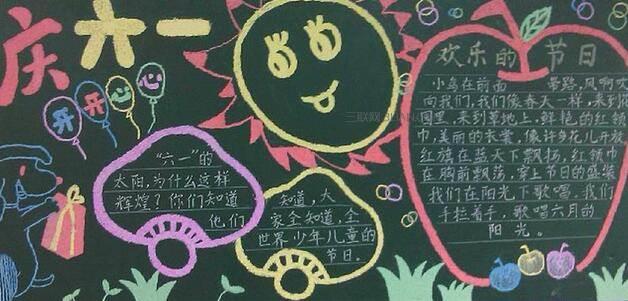 庆六一
开开心心
"六一"的
太阳,为什么这样
辉煌?你们知道
他们
知道,大
家全知道,全
世界少年儿童的
节日。
欢乐的节日
小鸟在前面 带路,风啊吹
向我们,我们像春天一样,来到花
园里,来到草地上,鲜艳的红领
巾,美丽的衣裳,像许多花儿开放
红旗在蓝天下飘扬,红领巾
在胸前飘荡,穿上节日的盛装
我们在阳光下歌唱。我们
手拉着手,歌唱六月的
阳光。
三联网